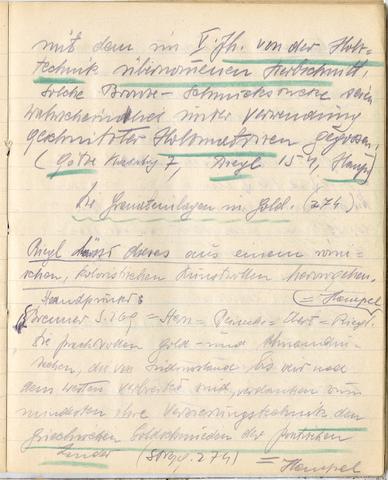 mit dem im V. Jh. von der Holz-
technik übernommenen Kerbschnitt.
Solche Bronze-Schmucksachen seien
wahrscheinlich unter Verwendung
geschnitzter Holzmatrizen gegossen.
(Götze 7, Riegl 154, Hampel)
Die Granateinlagen in Gold. (274.)
Riegl dieses aus einem römi-
schen, koloristischen Kunstwollen hervorgehen.
(= Hampel)
Brenner S. 269 = = = Riegl.
Die prachtvollen Gold- und
die von Südrussland bis nach
dem Westen verbreitet sind, verdanken zum
mindesten ihre Verzierungstechnik den
griechischen Goldschmieden der pontischen
Länder (Strzyg. 274) = Hampel